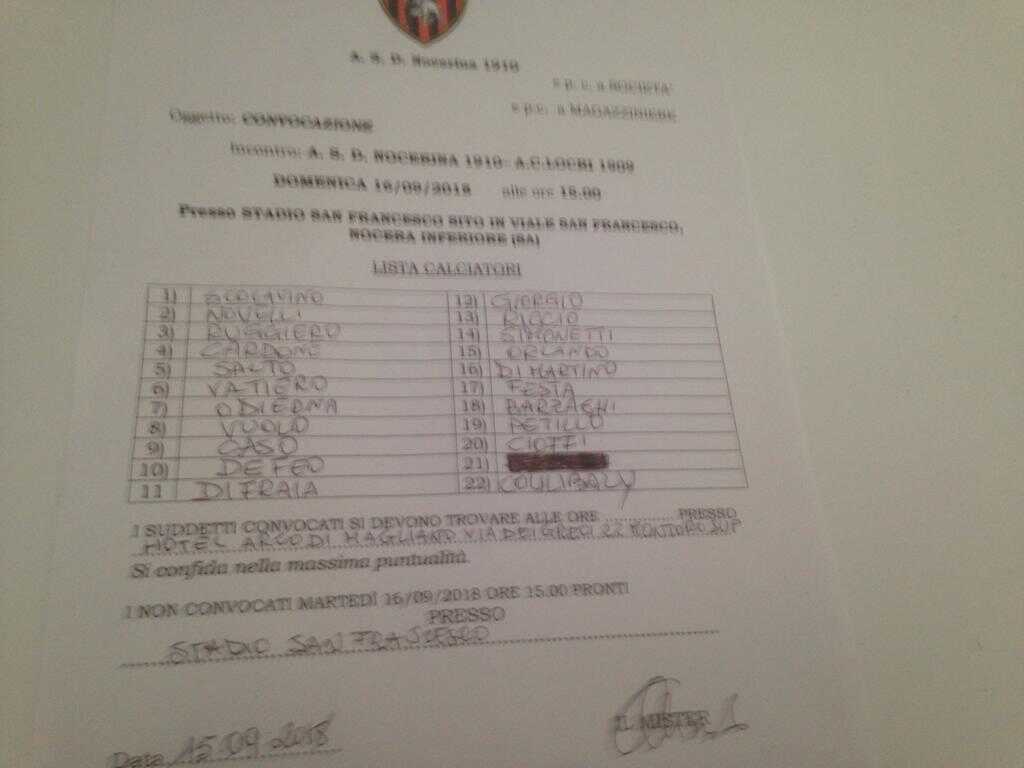 A. S. D. Nocerina 1910
e p. c. a SOCIETA'
e p.c. a MAGAZZINIERE
Oggetto: CONVOCAZIONE
Incontro: A. S. D. NOCERINA 1910- A.C.LOCRI 1909
DOMENICA 16/09/2018 alle ore 15.00
Presso STADIO SAN FRANCESCO SITO IN VIALE SAN FRANCESCO,
NOCERA INFERIORE (SA)
LISTA CALCIATORI
1) SCOLAVINO 12) GIORGIO
2) NOVELLI 13) RICCIO
3) RUGGIERO 14) SIMONETTI
4) CARDONE 15) ORLANDO
5) SALTO 16) DI MARTINO
6) VATIERO 17) FESTA
7) ODIERNA 18) BARZAGHI
8) VUOLO 19) PETILLO
9) CASO 20) CIOFFI
10) DE FEO 21)
11 DI FRAIA 22) COULIBALY
I SUDDETTI CONVOCATI SI DEVONO TROVARE ALLE ORE ............ PRESSO
HOTEL ARCO DI MAGLIANO VIA DEI GRECI 22 MONTORO SUP
Si confida nella massima puntualità.
I NON CONVOCATI MARTEDÌ 16/09/2018 ORE 15.00 PRONTI
PRESSO
STADIO SAN FRANCESCO
Data 15.09.2018 IL MISTER